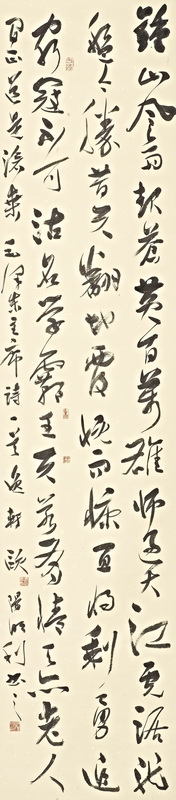 鍾山風雨起蒼黃百萬雄師過大江虎踞龍
盤今勝昔天翻地覆慨而慷宜將剩勇追
窮寇不可沽名學霸王天若有情天亦老人
間正道是滄桑 毛澤東主席詩一首 逸軒 歐陽利書之